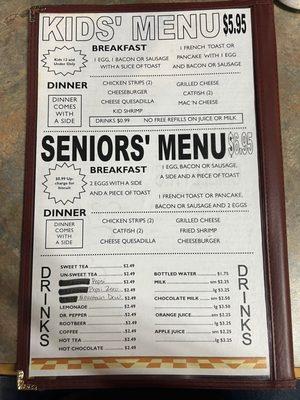 KIDS' MENU $5.95
BREAKFAST
Kids 12 and Under Only
1 EGG, 1 BACON OR SAUSAGE
WITH A SLICE OF TOAST
1 FRENCH TOAST OR
PANCAKE WITH 1 EGG
AND BACON OR SAUSAGE
DINNER
DINNER COMES WITH A SIDE
CHICKEN STRIPS (2)
CHEESEBURGER
CHEESE QUESADILLA
KID SHRIMP
GRILLED CHEESE
CATFISH (2)
MAC 'N CHEESE
DRINKS $0.99 NO FREE REFILLS ON JUICE OR MILK
SENIORS' MENU $6.95
BREAKFAST
$0.99 Up-charge for biscuit
2 EGGS WITH A SIDE
AND A PIECE OF TOAST
1 EGG, BACON OR SAUSAGE,
A SIDE AND A PIECE OF TOAST
1 FRENCH TOAST OR PANCAKE,
BACON OR SAUSAGE AND 2 EGGS
DINNER
DINNER COMES WITH A SIDE
CHICKEN STRIPS (2)
CATFISH (2)
CHEESE QUESADILLA
GRILLED CHEESE
FRIED SHRIMP
CHEESEBURGER
DRINKS
SWEET TEA $2.49
UN-SWEET TEA $2.49
Pepsi $2.49
Pepsi Zero $2.49
Mountain Dew $2.49
LEMONADE $2.49
DR. PEPPER $2.49
ROOTBEER $2.49
COFFEE $2.49
HOT TEA $2.49
HOT CHOCOLATE $2.49
BOTTLED WATER $1.75
MILK sm $2.25
lg $3.25
CHOCOLATE MILK sm $2.50
lg $3.50
ORANGE JUICE sm $2.25
lg $3.25
APPLE JUICE sm $2.25
lg $3.25
DRINKS